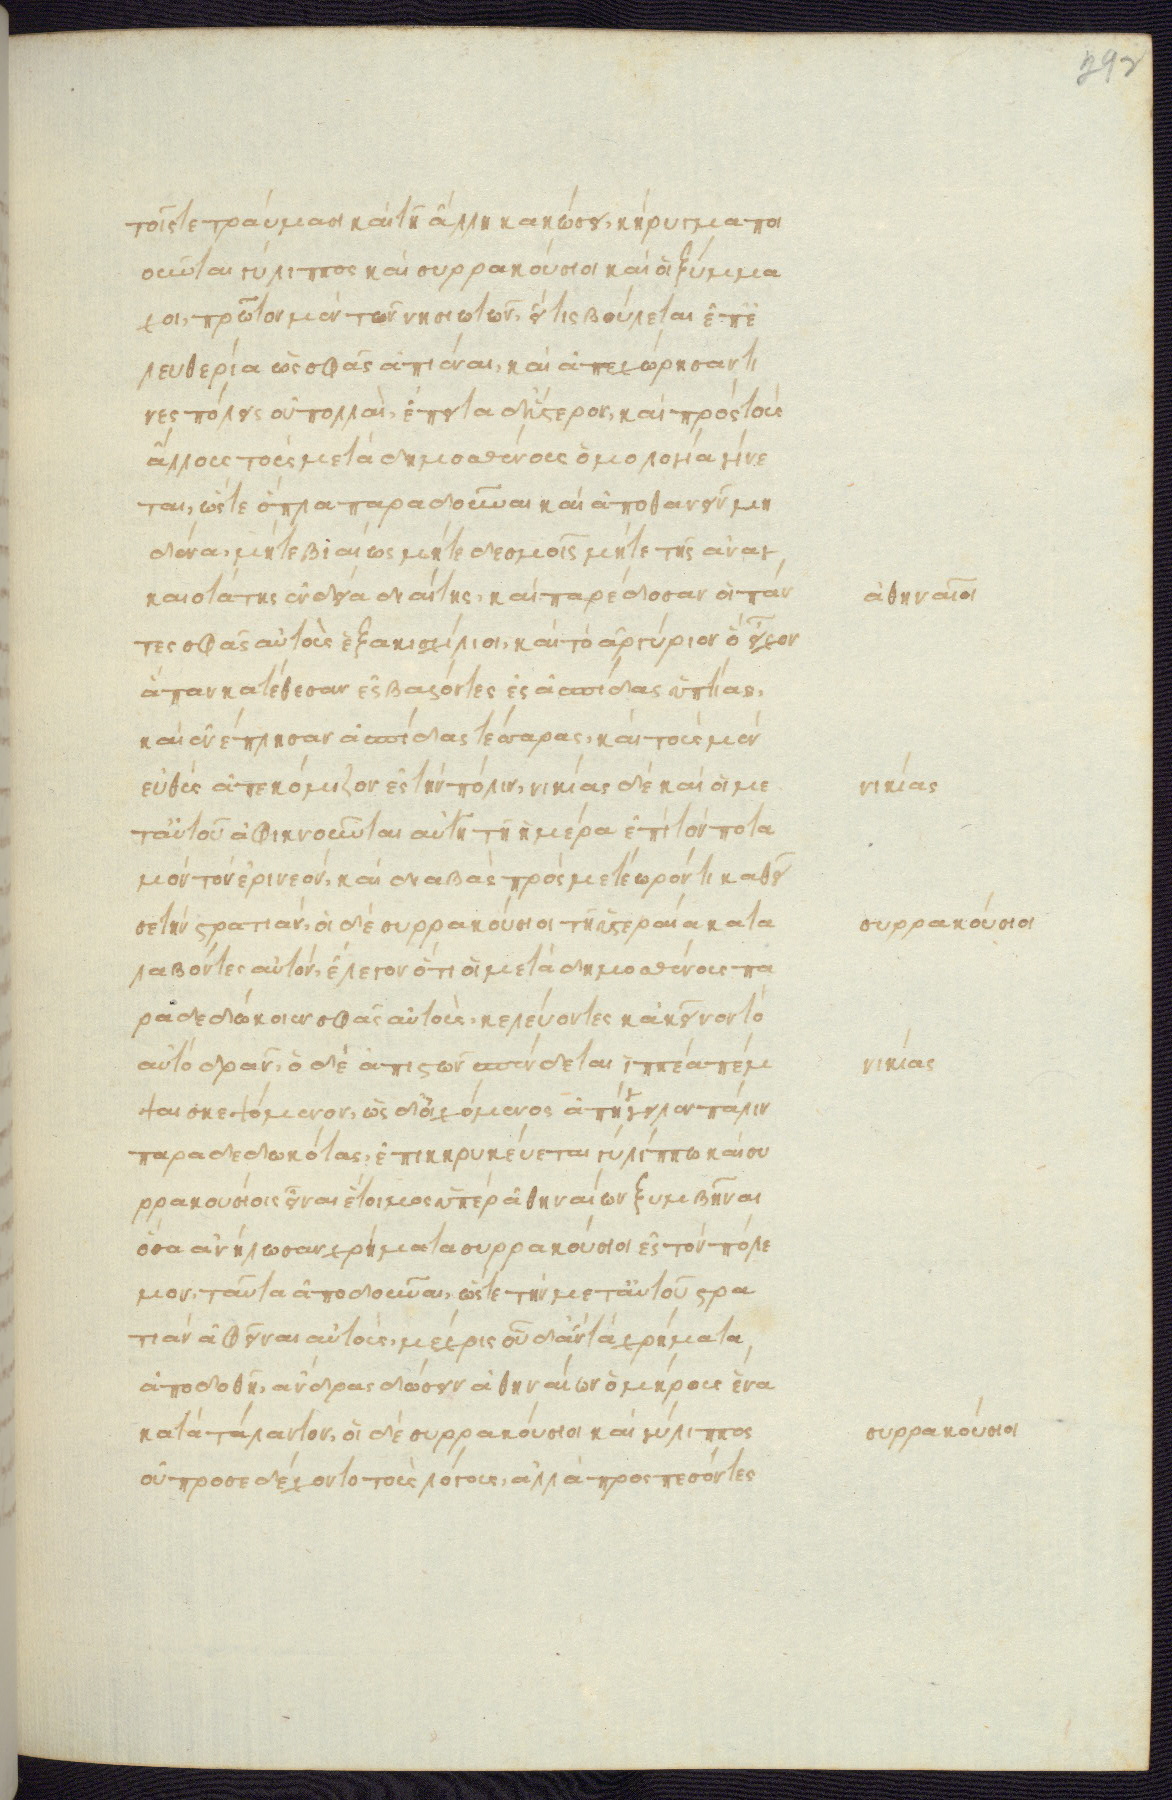 292
τοῖς τε τραύμασι καὶ τῆ ἄλλη κακώσει, κήρυγμα ποι
οῦνται γύλιππος καὶ συρρακούσιοι καὶ οἱ ξύμμα
χοι, πρῶτον μὲν τῶν νησιωτῶν, εἴ τις βούλεται ἐπ' ἐ
λευθερία ὡς σφᾶς ἀπιέναι, καὶ ἀπεχώρησάν τι
νες πόλεις οὐ πολλαὶ, ἔπειτα δ' ὕστερον, καὶ πρὸς τοὺς
ἄλλους τοὺς μετὰ δημοσθένους ὁμολογία γίνε
ται, ὥστε ὅπλα παραδοῦναι καὶ ἀποθανεῖν μη
δένα, μήτε βιαίως μήτε δεσμοῖς μήτε τῆς ἀναγ
καιοτάτης ἐνδεία διαίτης, καὶ παρέδοσαν οἱ πάν
τες σφᾶς αὐτοὺς ἑξακισχίλιοι, καὶ τὸ ἀργύριον ὃ εἶχον
ἅπαν κατέθεσαν ἐσβαλόντες ἐς ἀσπίδας ὑπτίας,
καὶ ἐνέπλησαν ἀσπίδας τέσσαρας, καὶ τοὺς μὲν
εὐθὺς ἀπεκόμιζον ἐς τὴν πόλιν, νικίας δὲ καὶ οἱ με
τ' αὐτοῦ ἀφικνοῦνται αὐτῆ τῆ ἡμέρα ἐπὶ τὸν ποτα
μὸν τὸν ἐρινεόν, καὶ διαβὰς πρὸς μετέωρόν τι καθεῖ
σε τὴν στρατιάν, οἱ δὲ συρρακούσιοι τῆ ὑστεραία κατα
λαβόντες αὐτόν, ἔλεγον ὅτι οἱ μετὰ δημοσθένους πα
ραδεδώκοιεν σφᾶς αὐτοὺς, κελεύοντες κἀκεῖνον τὸ
αὐτὸ δρᾶν, ὁ δὲ ἀπιστῶν σπένδεται ἱππέα πέμ
ψαι σκεψόμενον, ὡς δ' οἰχόμενος ἀπήγγειλεν πάλιν
παραδεδωκότας, ἐπικηρυκεύεται γυλίππω καὶ συ
ρρακουσίοις εἶναι ἑτοῖμος ὑπὲρ ἀθηναίων ξυμβῆναι
ὅσα ἀνήλωσαν χρήματα συρρακούσιοι ἐς τὸν πόλε
μον, ταῦτα ἀποδοῦναι, ὥστε τὴν μετ' αὐτοῦ στρα
τιὰν ἀφεῖναι αὐτοὺς, μέχρις οὗ δ' ἂν τὰ χρήματα
ἀποδοθῆ, ἄνδρας δώσειν ἀθηναίων ὁμήρους ἕνα
κατὰ τάλαντον, οἱ δὲ συρρακούσιοι καὶ γύλιππος
οὐ προσεδέχοντο τοὺς λόγους, ἀλλὰ προσπεσόντες
ἀθηναῖοι
νικίας
συρρακούσιοι
νικίας
συρρακούσιοι